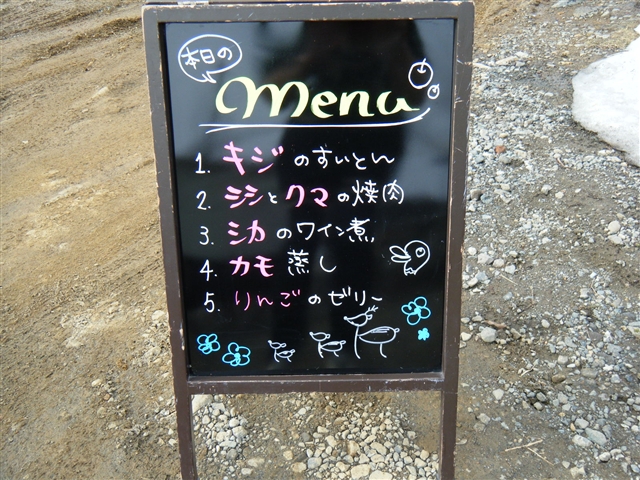 本日の
menu
1. キジのすいとん
2. シシとクマの焼肉
3. シカのワイン煮
4. カモ蒸し
5. りんごのゼリー